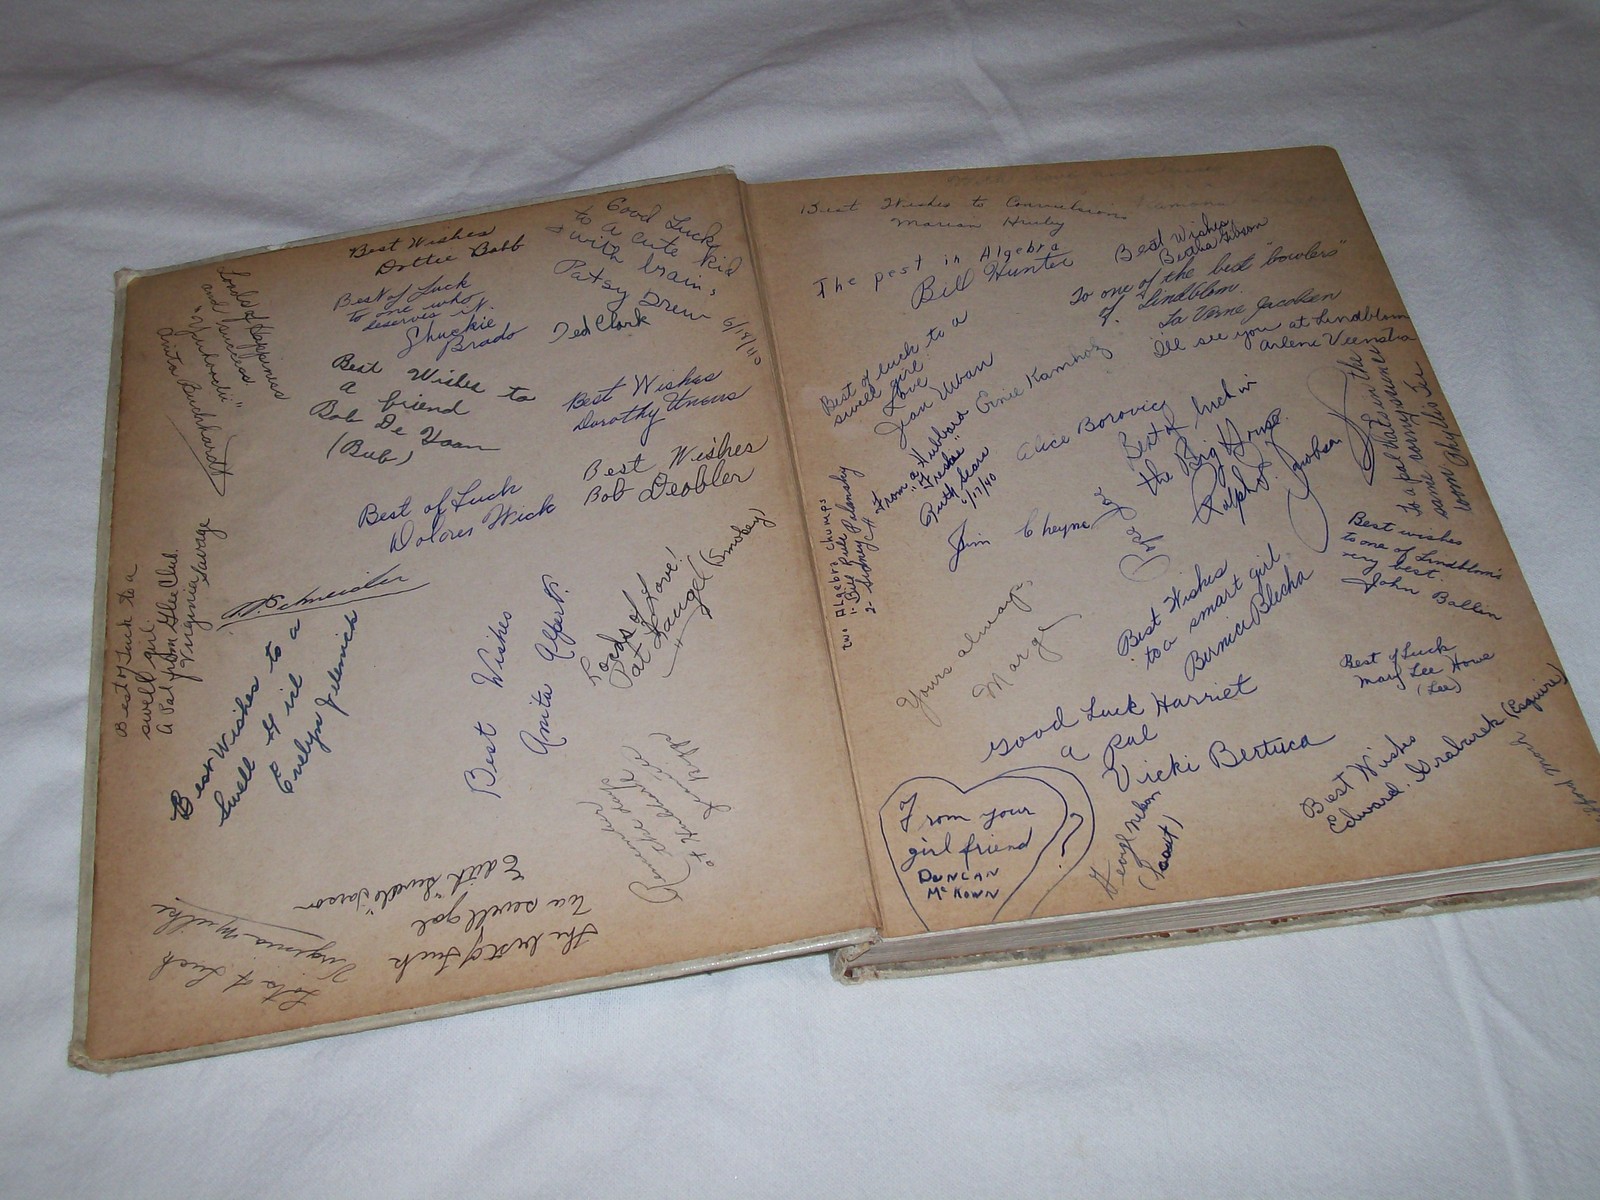 Best Wishes
Dottie Babb
Good Luck
to a cute kid
with brains
Patsy Drew
6/13/40
Best of Luck
to one who
deserves it.
Chuckie
Brado
Ted Clark
Loads of Happiness
and success
Anita Burkhardt
Best Wishes to
a friend
Bob De Haan
(Bub)
Best Wishes
Dorothy
Best Wishes
Bob Deobler
Best of Luck
Dolores Wick
Best of Luck to a
swell girl.
A Pal from Glee Club.
Virginia Savage
Schneider
Best Wishes to a
Swell Girl
Evelyn Jelemick
Best Wishes
Anita
Loads of
Love!
Pat (Smokey)
Remember
the days
at Hubbard
The best of luck
To a swell gal
Edith "Swede" Larson
Lots of Luck
Virginia Milke
Best Wishes to
Marian Hruby
The pest in Algebra
Bill Hunter
Best Wishes
Bertha Gibson
To one of the best "bowlers"
of Lindblom.
La Verne Jacobsen
I'll see you at Lindblom
Arlene Veenstra
Best of luck to a
swell girl
Love
Jean Uvan
Ernie Kamholz
From a Hubbard
"Freshie"
Ruth Sears
6/17/40
Alice Borovic
Best of luck in
the Big House.
Ralph J. Jacobson
To a pal that's in the
same
room Phyllis
Two Algebra Chumps
1- Bill
2- Sidney
Jim Cheyne
Best wishes
to one of Lindblom's
very best.
John Bollin
Yours always
Marge
Best Wishes
to a smart girl
Bernice Blecha
Best of Luck
Mary Lee Howe
(Lee)
Good Luck Harriet
a Pal
Vicki Bertuca
Best Wishes
Edward Grabarek (Esquire)
From your
girl friend
?
DUNCAN
McKOWN
Nelson
(Scout)